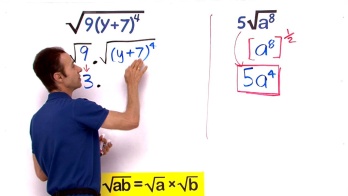 √9(y+7)⁴
√9 · √(y+7)⁴
3 ·
5√a⁸
[a⁸]^½
5a⁴
√ab = √a × √b